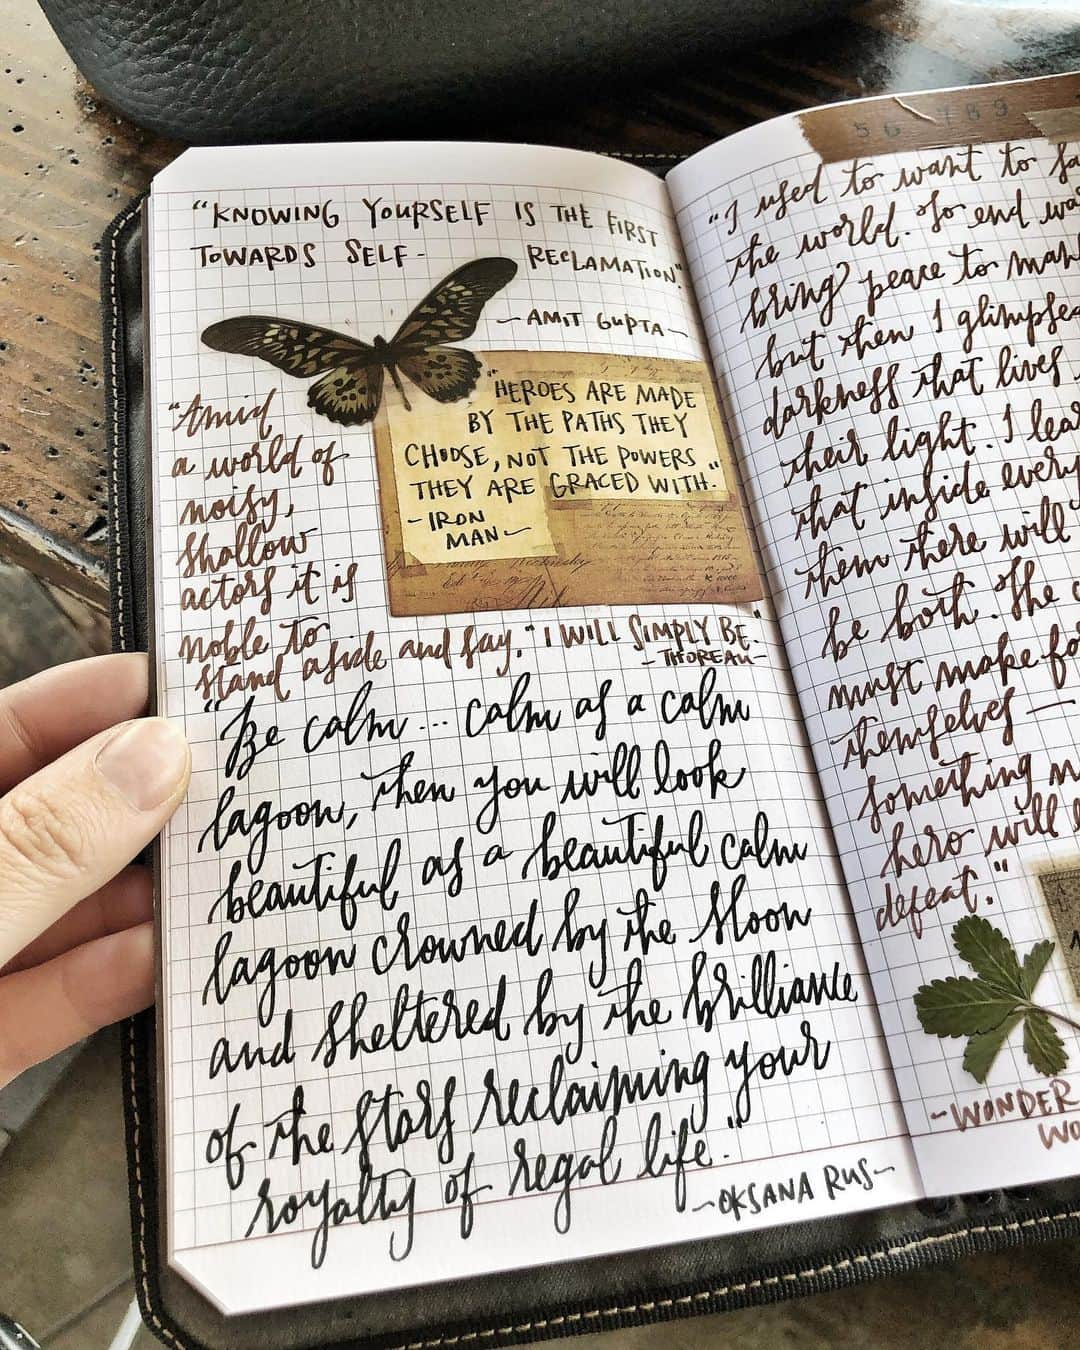 "KNOWING YOURSELF IS THE FIRST
TOWARDS SELF- RECLAMATION."
-AMIT GUPTA-
"HEROES ARE MADE
BY THE PATHS THEY
CHOOSE, NOT THE POWERS
THEY ARE GRACED WITH."
-IRON
MAN-
"Amid
a world of
noisy,
shallow
actors it is
noble to
stand aside and say, "I WILL SIMPLY BE."
-THOREAU-
"Be calm... calm as a calm
lagoon, then you will look
beautiful as a beautiful calm
lagoon crowned by the Moon
and sheltered by the brilliance
of the stars reclaiming your
royalty of regal life."
-OKSANA RUS-
56 789
"I used to want to
the world. To end
bring peace to
but then I
darkness that lives
their light. I
that inside
them there will
be both. The
must make
themselves —
something
hero will
defeat."
-WONDER